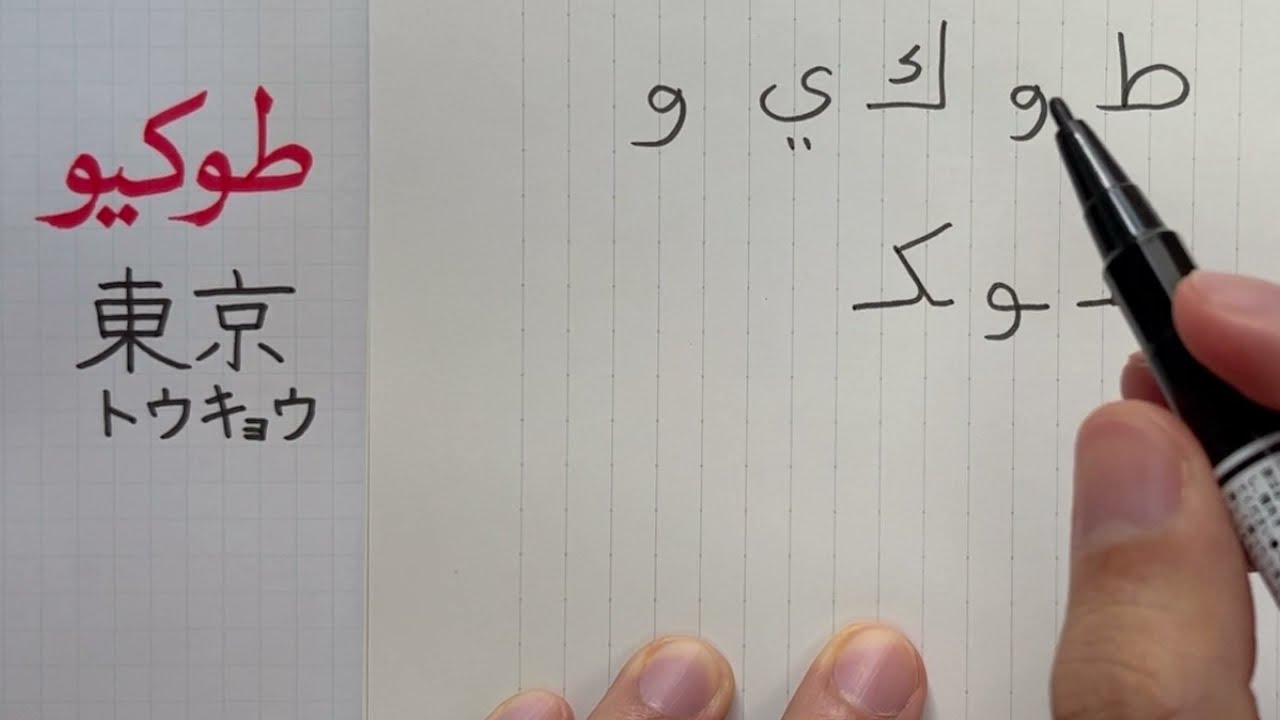 طوكيو
東京
トウキョウ
ط و ك ي و
و كـ